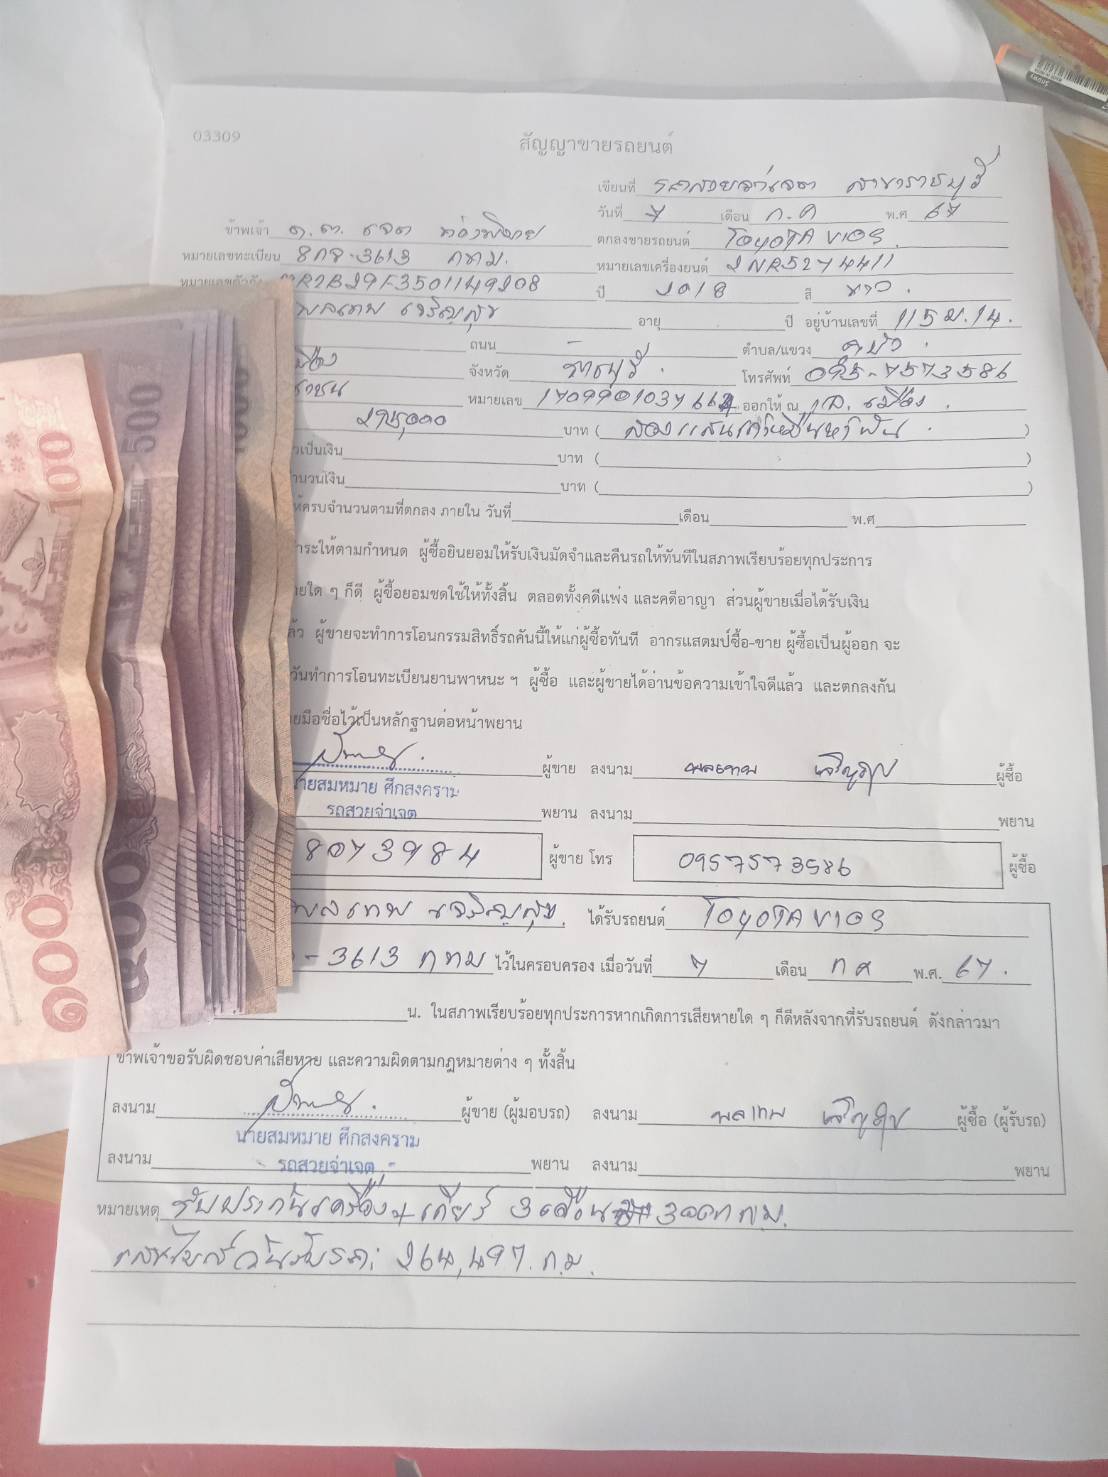 03309
สัญญาขายรถยนต์
เขียนที่ รถสวยจ่าเจต สาขาราชบุรี
วันที่ 7 เดือน ก.ค พ.ศ 67
ข้าพเจ้า จ.ต. เจต
ตกลงขายรถยนต์ TOYOTA VIOS.
หมายเลขทะเบียน 8กจ-3613 กทม.
หมายเลขเครื่องยนต์ 2NR5274411
หมายเลขตัวถัง
ปี 2018 สี ขาว.
พลเทพ เจริญสุข อายุ ปี อยู่บ้านเลขที่ 115 ม.14.
ถนน - ตำบล/แขวง
เมือง จังหวัด ราชบุรี. โทรศัพท์ 095-7573586
หมายเลข ออกให้ ณ
295,000 บาท ( สองแสนเก้าหมื่นห้าพัน. )
เป็นเงิน บาท ( )
นวนเงิน บาท ( )
ห้ครบจำนวนตามที่ตกลง ภายใน วันที่ เดือน พ.ศ
ำระให้ตามกำหนด ผู้ซื้อยินยอมให้รับเงินมัดจำและคืนรถให้ทันทีในสภาพเรียบร้อยทุกประการ
ยใด ๆ ก็ดี ผู้ซื้อยอมชดใช้ให้ทั้งสิ้น ตลอดทั้งคดีแพ่ง และคดีอาญา ส่วนผู้ขายเมื่อได้รับเงิน
ล้ว ผู้ขายจะทำการโอนกรรมสิทธิ์รถคันนี้ให้แก่ผู้ซื้อทันที อากรแสตมป์ซื้อ-ขาย ผู้ซื้อเป็นผู้ออก จะ
วันทำการโอนทะเบียนยานพาหนะ ฯ ผู้ซื้อ และผู้ขายได้อ่านข้อความเข้าใจดีแล้ว และตกลงกัน
ยมือชื่อไว้เป็นหลักฐานต่อหน้าพยาน
ผู้ขาย ลงนาม พลเทพ เจริญสุข ผู้ซื้อ
ายสมหมาย ศึกสงคราม
รถสวยจ่าเจต
พยาน ลงนาม พยาน
8073984 ผู้ขาย โทร 0957573586 ผู้ซื้อ
พลเทพ เจริญสุข. ได้รับรถยนต์ TOYOTA VIOS
-3613 กทม ไว้ในครอบครอง เมื่อวันที่ 7 เดือน กค พ.ศ. 67.
น. ในสภาพเรียบร้อยทุกประการหากเกิดการเสียหายใด ๆ ก็ดีหลังจากที่รับรถยนต์ ดังกล่าวมา
ข้าพเจ้าขอรับผิดชอบค่าเสียหาย และความผิดตามกฎหมายต่าง ๆ ทั้งสิ้น
ลงนาม ผู้ขาย (ผู้มอบรถ) ลงนาม พลเทพ เจริญสุข ผู้ซื้อ (ผู้รับรถ)
นายสมหมาย ศึกสงคราม
รถสวยจ่าเจต
ลงนาม พยาน ลงนาม พยาน
หมายเหตุ รับประกันเครื่อง+เกียร์ 3เดือน 3000กม.
เลขไมล์วันรับรถ: 264,497.ก.ม.
100
๑๐๐
500
๕๐๐